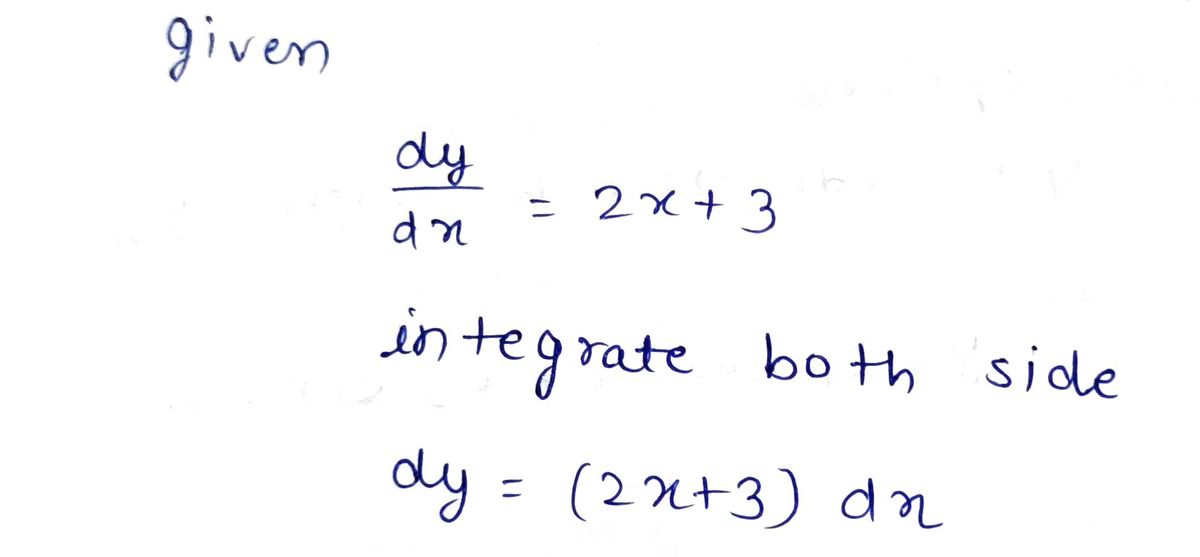 given
dy/dx = 2x+3
integrate both side
dy = (2x+3) dx